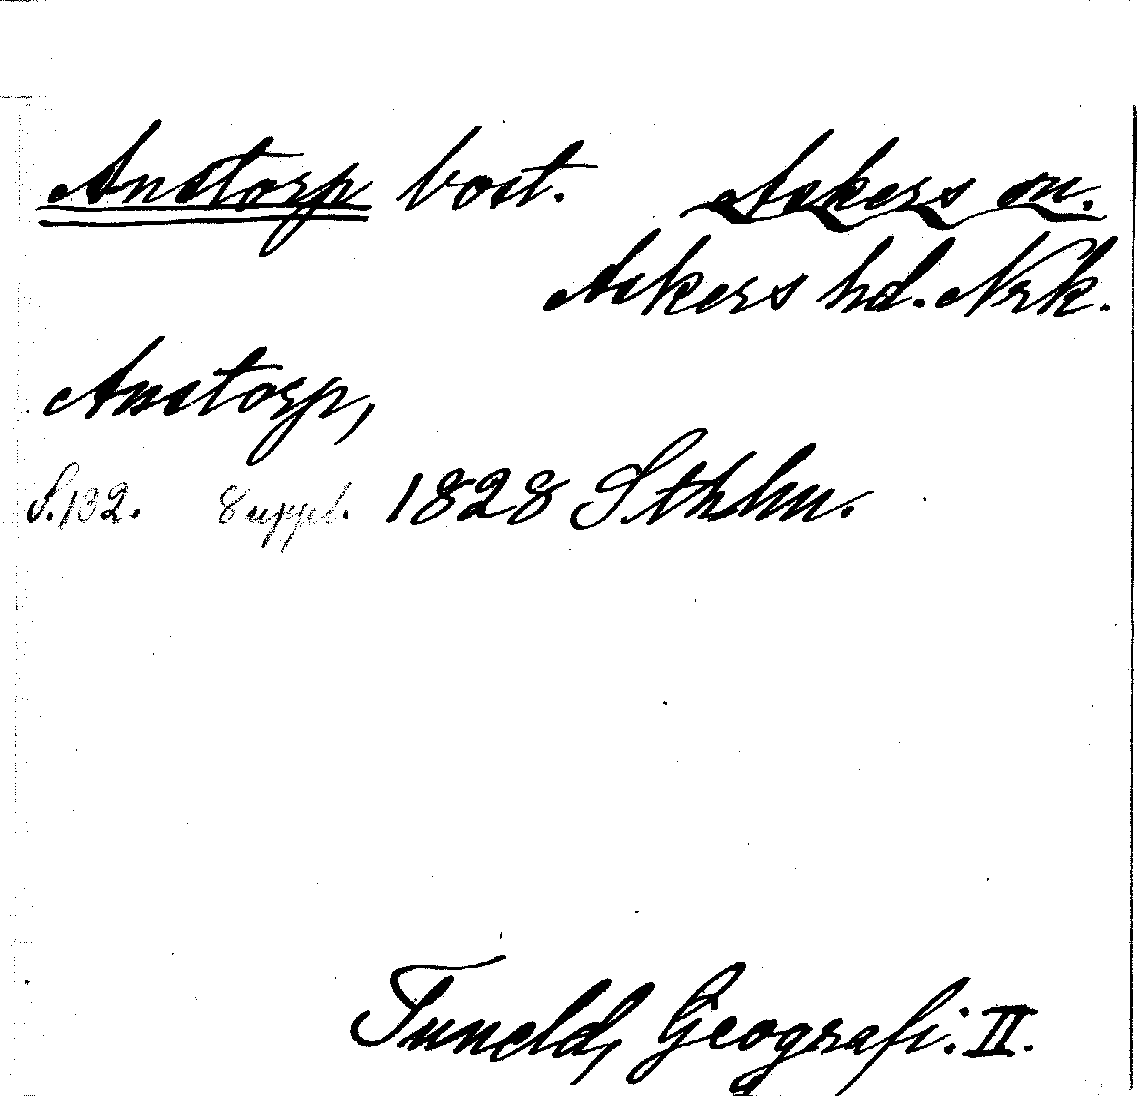 Anstorp bost. Askers sn.
Askers hd. Nrk.
Anstorp,
S.132. Suppl. 1828 Sthlm.
Tuneld, Geografi. II.